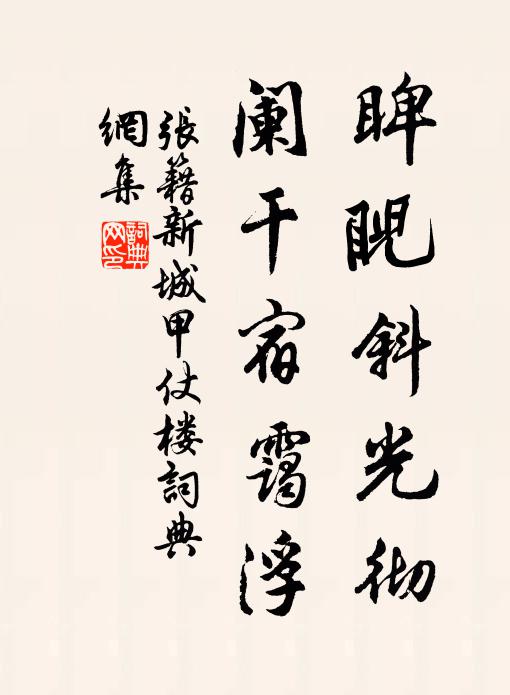 睥睨斜光彻
阑干宿霭浮
張籍新城甲仗楼詞典
網集
詞典
网印